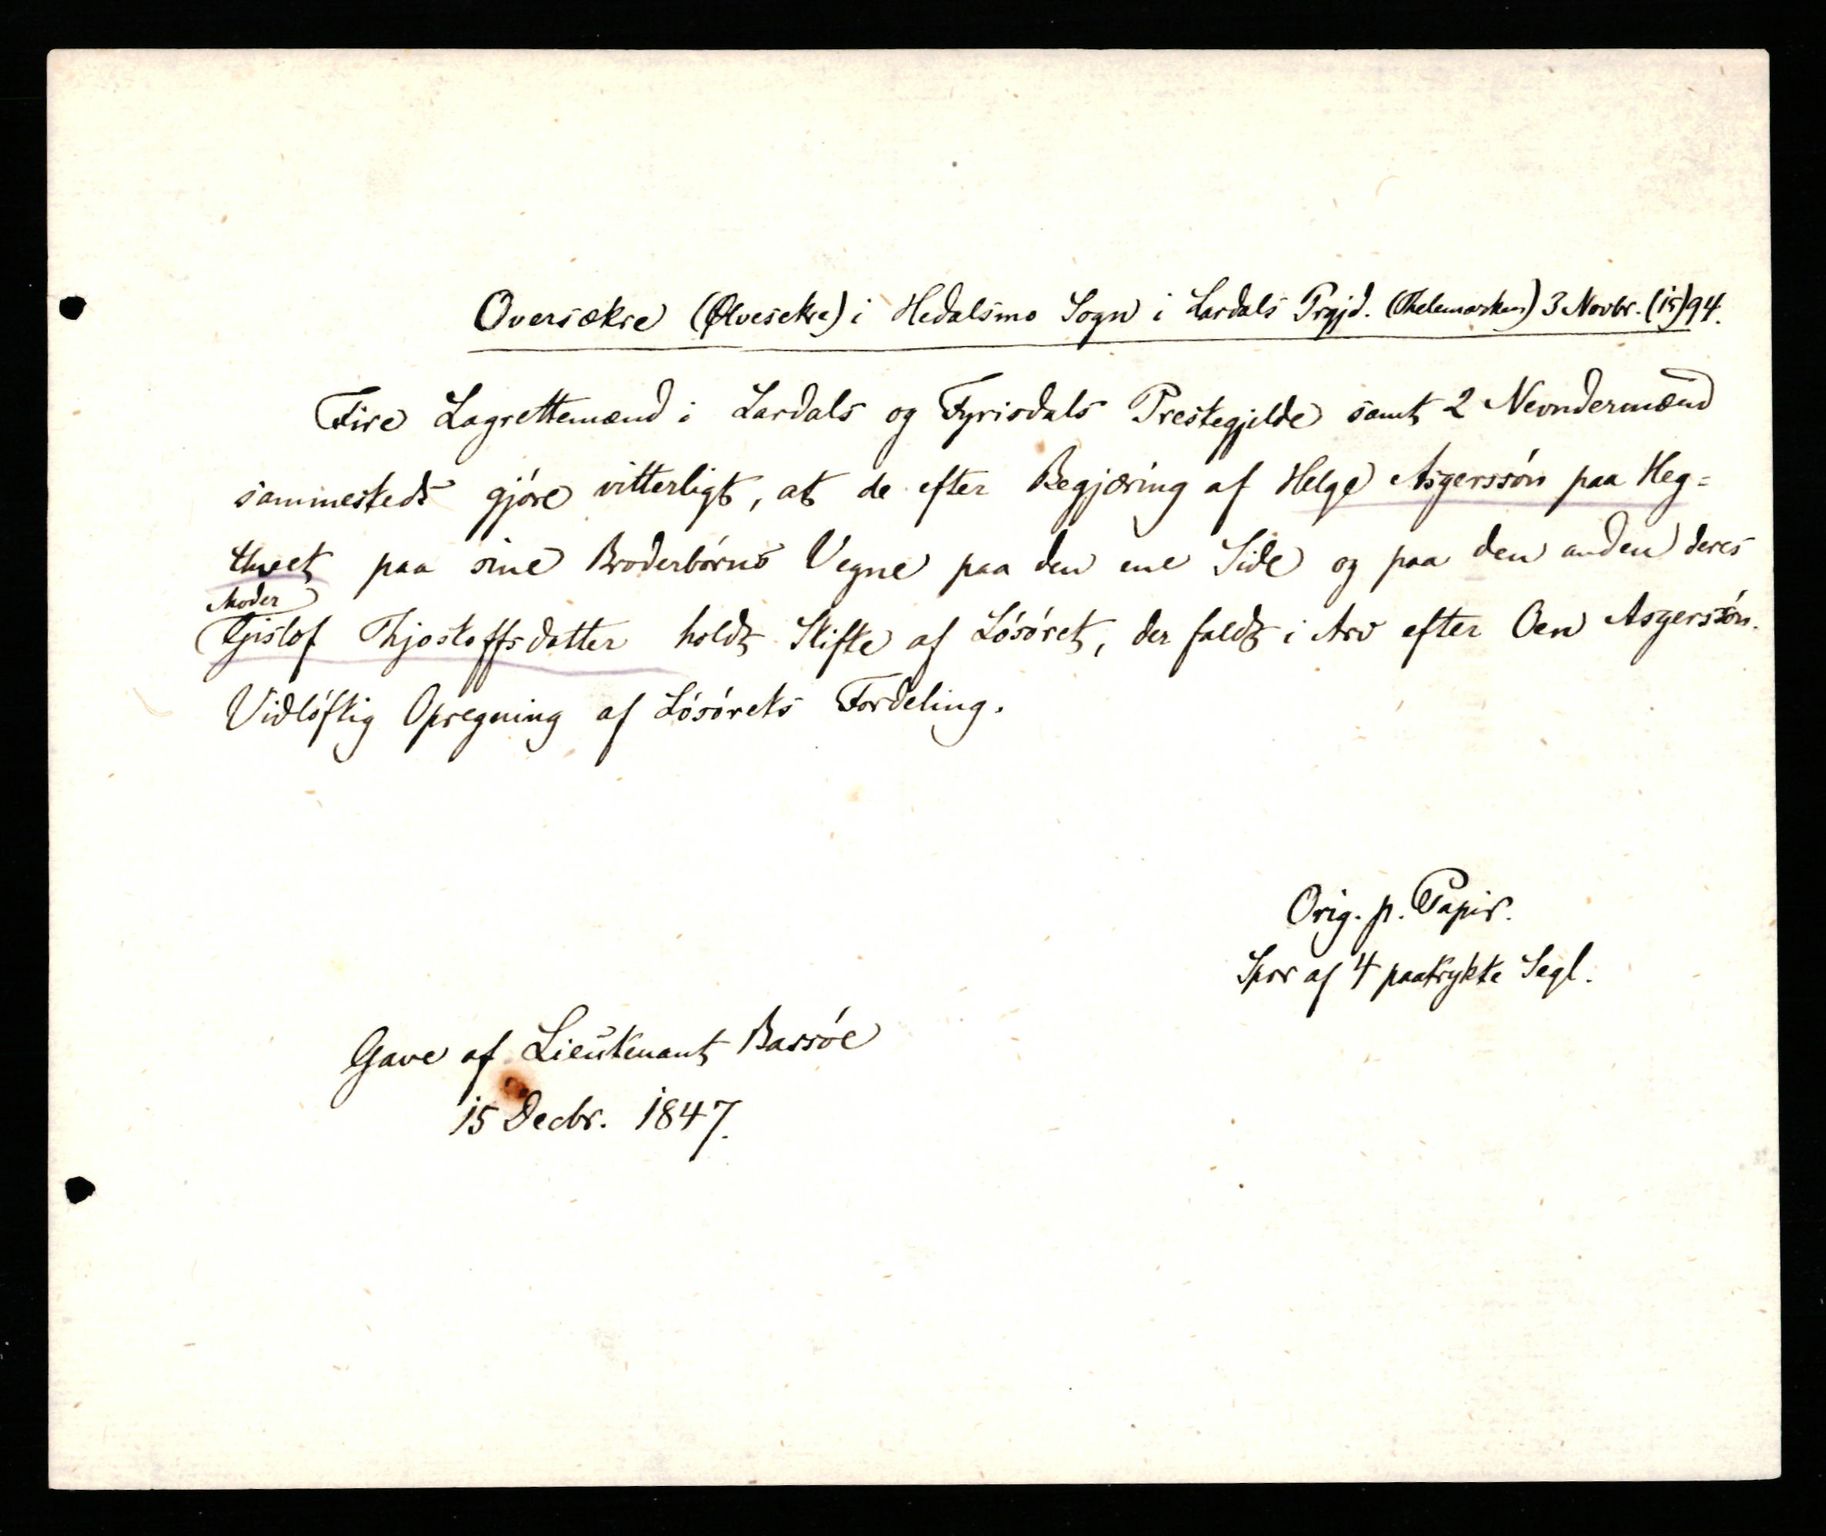 Oversækre (Ølvesekre) i Hedalsmo Sogn i Lardals Prgjd. (Thelemarken) 3 Novbr. (15)94.
Fire Lagrettemænd i Lardals og Fyrisdals Prestegjilde samt 2 Nevndermænd
sammesteds gjöre vitterligt, at de efter Begjæring af Helge Asgerssön paa Heg=
thveet paa sine Broderbörns Vegne paa den ene Side og paa den anden deres
Moder
Gislof Thjostoffsdatter holdt Skifte af Lösöret, der faldt i Arv efter Oen Asgerssön.
Vidlöftig Opregning af Lösörets Fordeling.
Orig. p. Papir.
Spor af 4 paatrykte Segl.
Gave af Lieutenant Bassöe
15 Decbr. 1847.